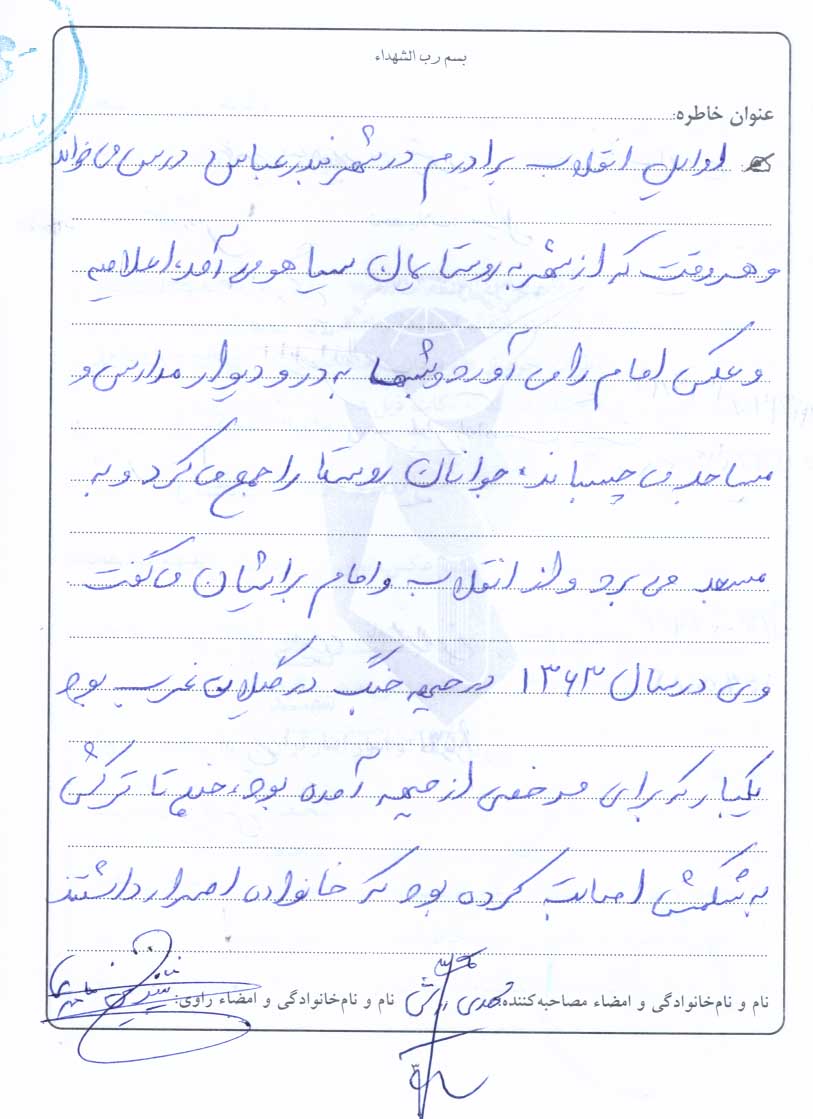 بسم رب الشهداء
عنوان خاطره:
اوایل انقلاب برادرم در شهر بندرعباس درس می خواند
و هر وقت که از شهر به روستایمان سیاهو می آمد، اعلامیه
و عکس امام را می آورد و شبها به در و دیوار مدارس و
مساجد می چسباند. جوانان روستا را جمع می کرد و به
مسجد می برد و از انقلاب و امام برایشان می گفت
وی در سال ۱۳۶۳ در جبهه جنگ در گیلان غرب بود
یکبار که برای مرخصی از جبهه آمده بود، پنج تا ترکش
به شکمش اصابت کرده بود که خانواده اصرار داشتند
نام و نام خانوادگی و امضاء مصاحبه کننده: مهدی نام و نام خانوادگی و امضاء راوی: